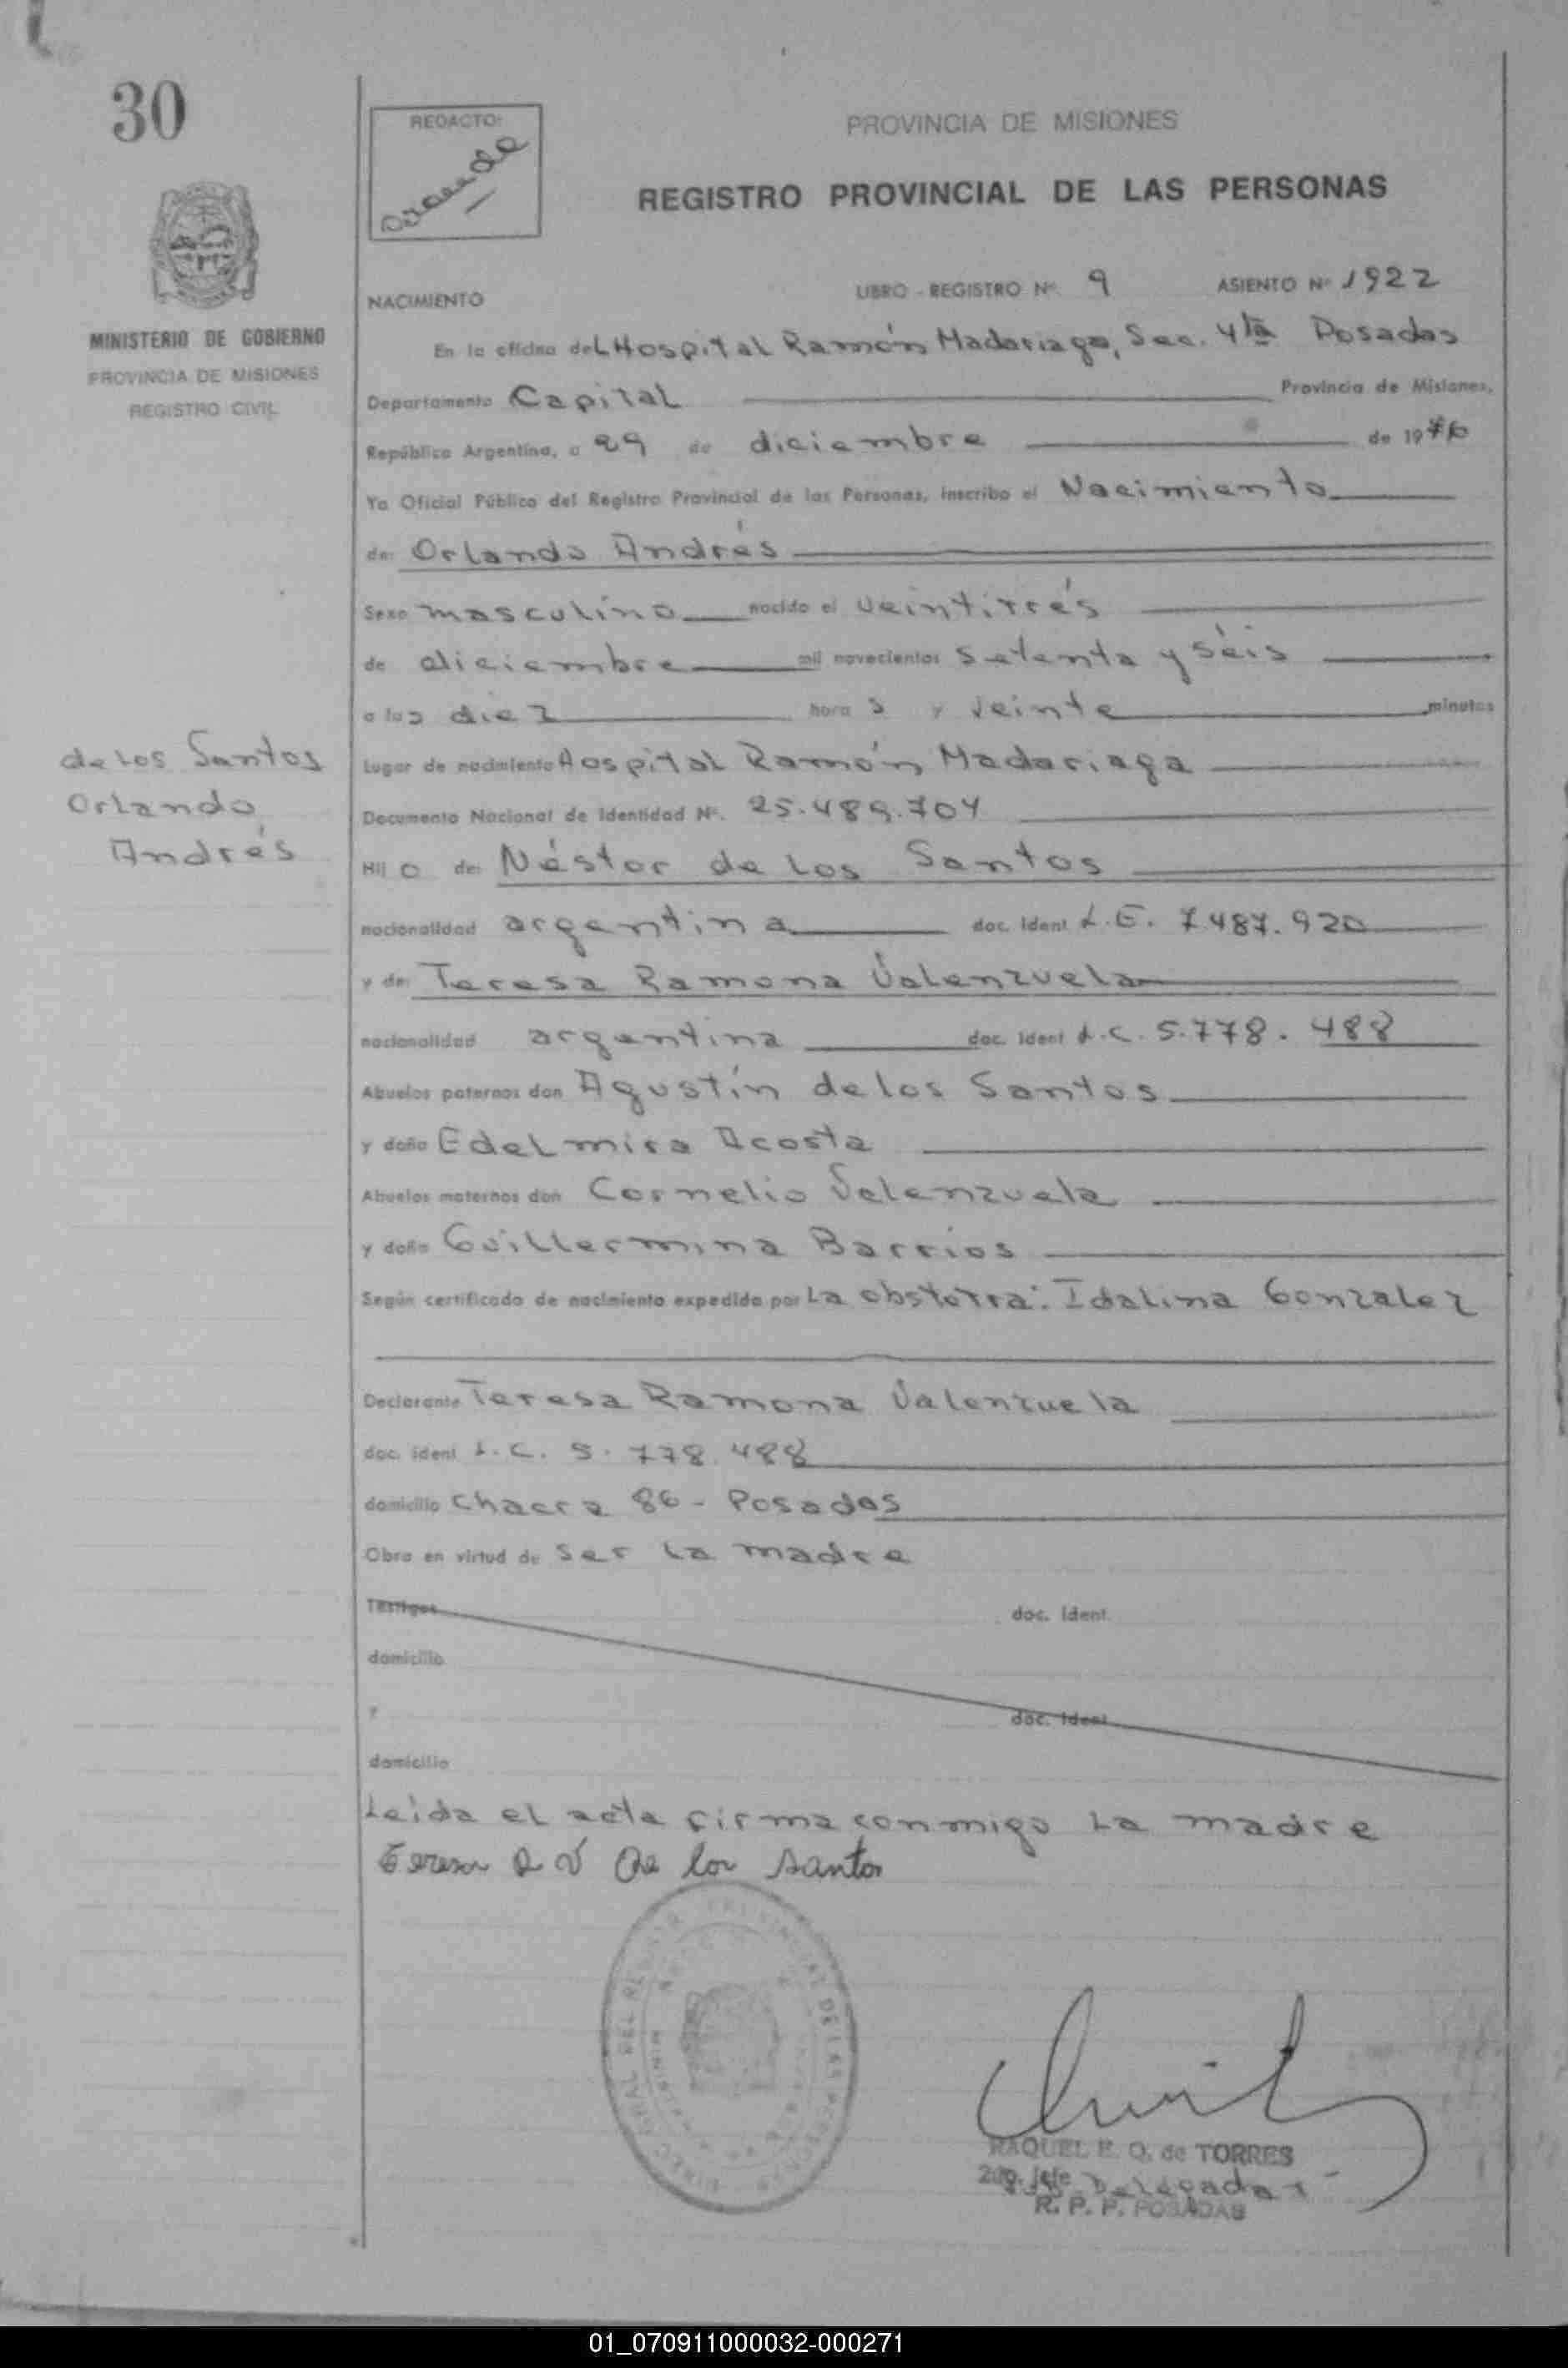 30
REDACTO:
PROVINCIA DE MISIONES
REGISTRO PROVINCIAL DE LAS PERSONAS
MINISTERIO DE GOBIERNO
PROVINCIA DE MISIONES
REGISTRO CIVIL
NACIMIENTO LIBRO - REGISTRO Nº 9 ASIENTO Nº 1922
En la oficina del Hospital Ramón Madariaga, Sec. 4ta Posadas
Departamento Capital Provincia de Misiones,
República Argentina, a 29 de diciembre de 1976
Yo Oficial Público del Registro Provincial de las Personas, inscribo el Nacimiento
de: Orlando Andrés
Sexo masculino nacido el veintitrés
de diciembre mil novecientos setenta y séis
a las diez hora s y veinte minutos
de los Santos
Orlando
Andrés
Lugar de nacimiento Hospital Ramón Madariaga
Documento Nacional de Identidad Nº. 25.489.704
Hij o de: Néstor de los Santos
nacionalidad argentina doc. Ident L.E. 7.487.920
y de: Teresa Ramona Valenzuela
nacionalidad argentina doc. Ident L.C. 5.778.488
Abuelos paternos don Agustín de los Santos
y doña Edelmira Acosta
Abuelos maternos don Cornelio Valenzuela
y doña Guillermina Barrios
Según certificado de nacimiento expedido por La obstetra: Idalina Gonzalez
Declarante Teresa Ramona Valenzuela
doc. ident L.C. 5.778.488
domicilio Chacra 86 - Posadas
Obra en virtud de ser la madre
Testigos doc. Ident.
domicilio
y doc. Ident
domicilio
Leída el acta firma conmigo la madre
Teresa R V de los santos
RAQUEL E. Q. de TORRES
2do. Jefe Delegada
R. P. P. POSADAS
01_070911000032-000271